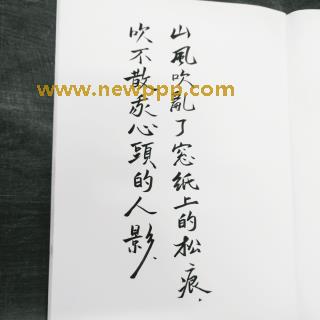 山風吹亂了窓紙上的松痕.
吹不散我心頭的人影.
www.newppp.com